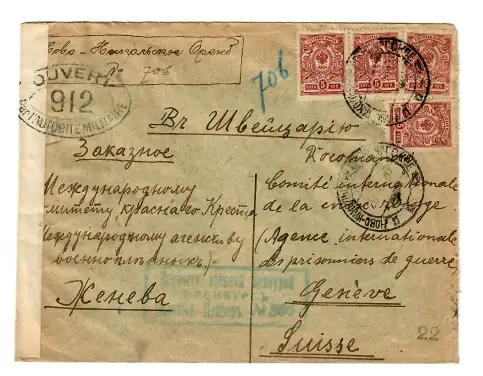 Ново-Никольское Оренб
№ 706
706
OUVERT
912
PAR L'AUTORITÉ MILITAIRE
Въ Швейцарію
Заказное
Recomand
Международному
комитету краснаго Креста
(Международному агенству
военноплѣнныхъ)
Женева
Comité internationale
de la croix rouge
(Agence internationale
des prisonniers de guerre)
Genève
Suisse
ОРЕНБУРГЪ
22